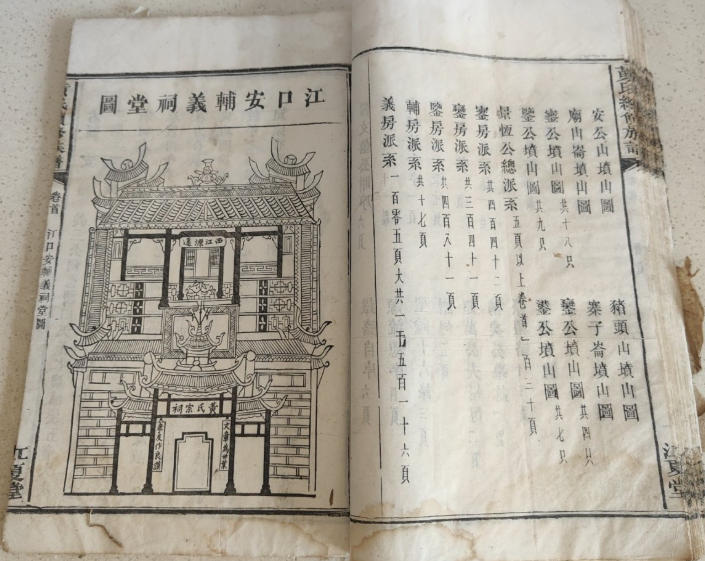 黃氏續修族譜
江夏堂
安公山墳山圖 豬頭山墳山圖
廟山崙墳山圖共十八只 寨子崙墳山圖共四只
公墳山圖共九只 鑾公墳山圖共七只
鑒公墳山圖 公墳山圖
恆公總派系五頁以上卷首一百二十頁
房派系共四百四十二頁
鑾房派系共三百四十一頁
鑒房派系共四百六十一頁
輔房派系共十七頁
義房派系一百零五頁大共一千五百一十六頁
江口安輔義祠堂圖
西江源遠
黃氏宗祠
文章為世業
孝友作良
卷首
江口安輔義祠堂圖
江夏堂